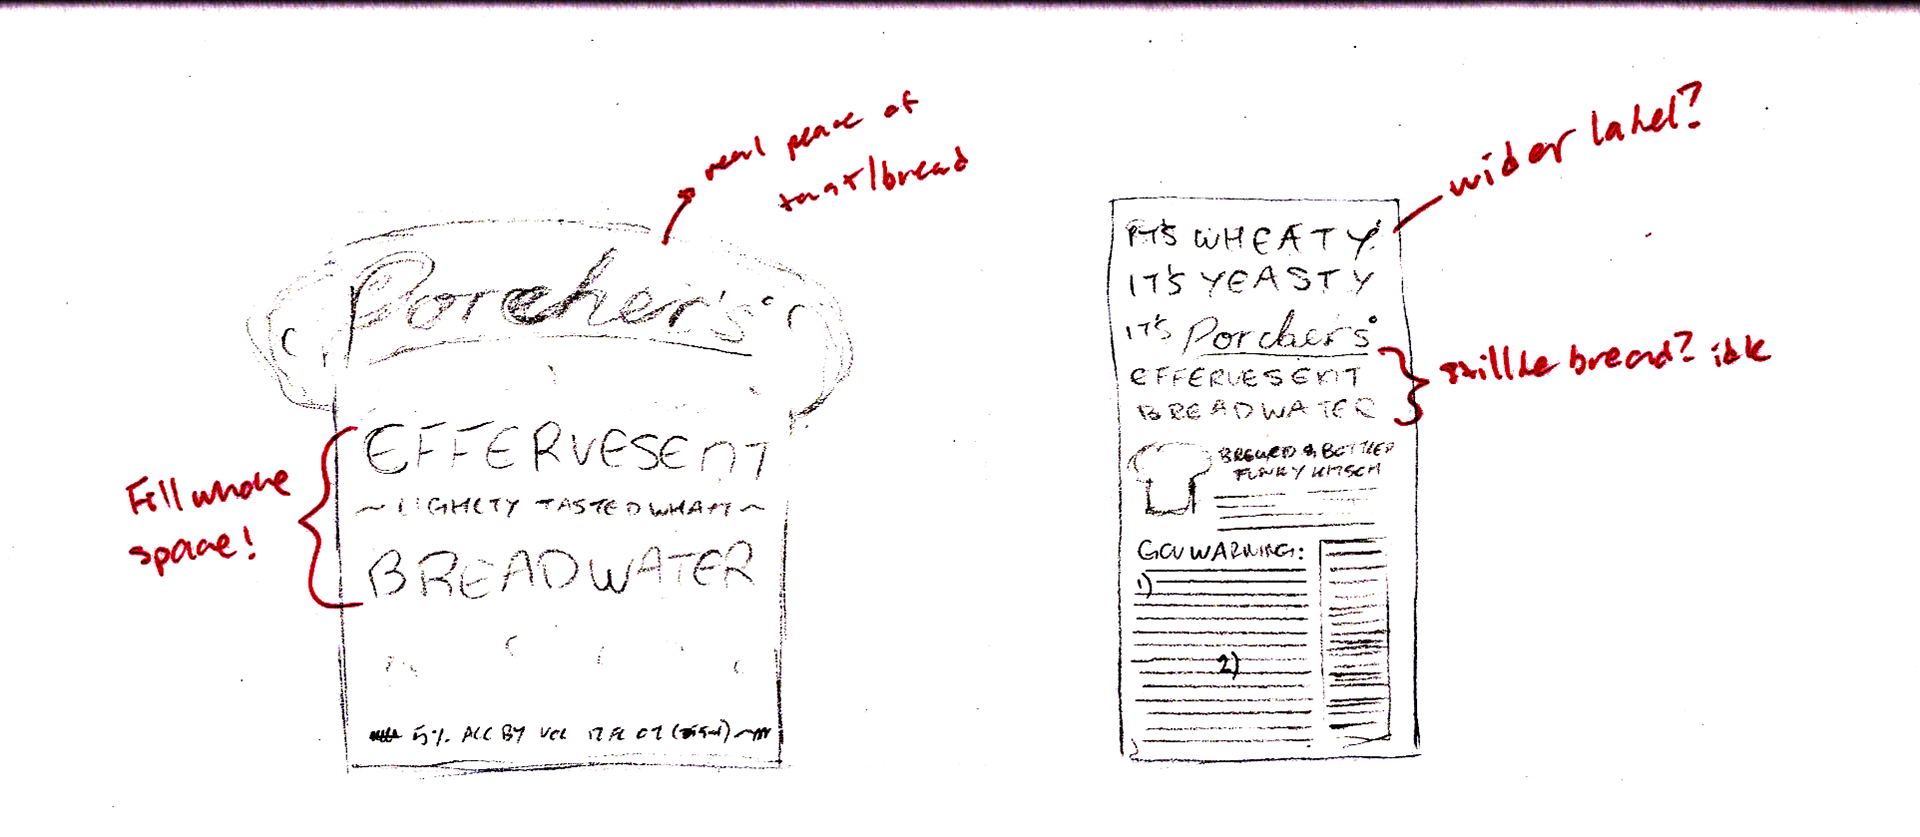 real peace of
toast/bread
Porcher's
EFFERVESENT
~ LIGHLTY TASTED WHAM ~
BREADWATER
5% ALC BY VOL 12 FL OZ
Fill whole
space!
wider label?
IT'S WHEATY
IT'S YEASTY
IT'S Porcher's
EFFERVESENT
BREADWATER
still be bread? idk
BREWED & BOTTLED
FUNKY KITSCH
GOV WARNING:
1)
2)